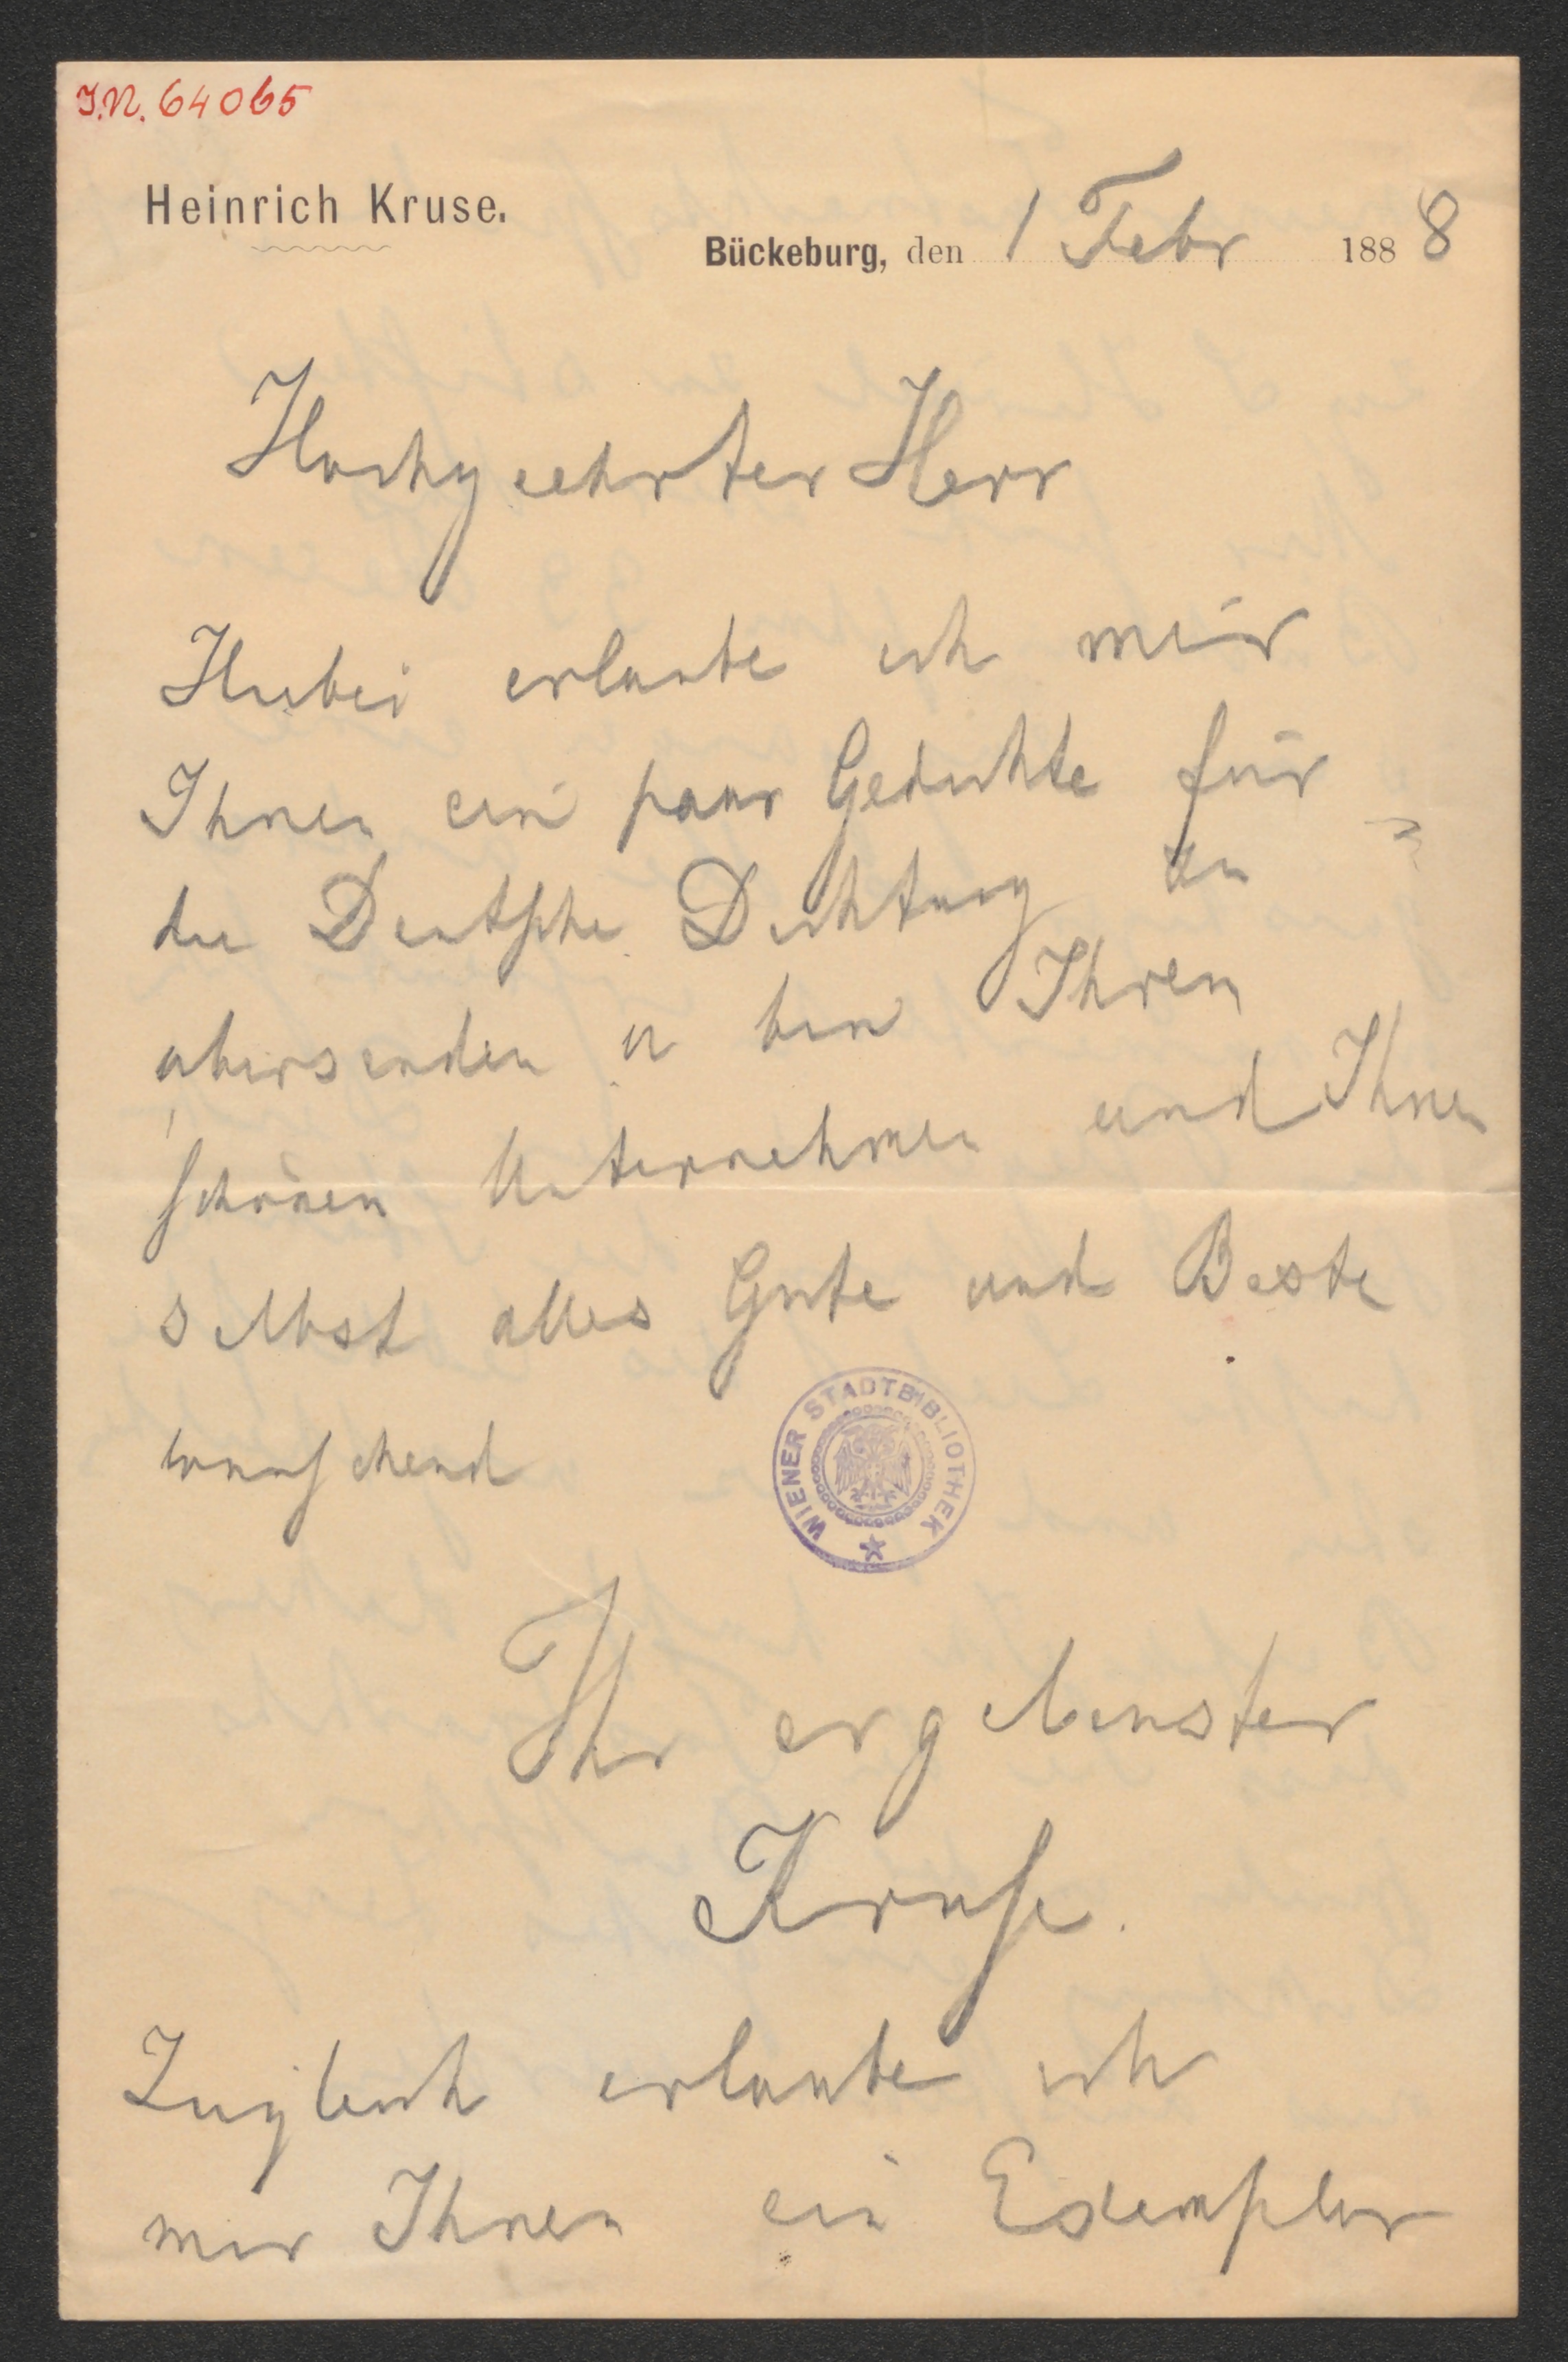 I.N. 64065
Heinrich Kruse.
Bückeburg, den 1 Febr 1888
Hochgeehrter Herr
Hiebei erlaube ich mir
Ihnen ein paar Gedichte für
die Deutsche Dichtung zu
übersenden u bin Ihrem
schönen Unternehmen und Ihnen
selbst alles Gute und Beste
wünschend
WIENER STADTBIBLIOTHEK
Ihr ergebenster
Kruse.
Zugleich erlaube ich
mir Ihnen ein Exemplar